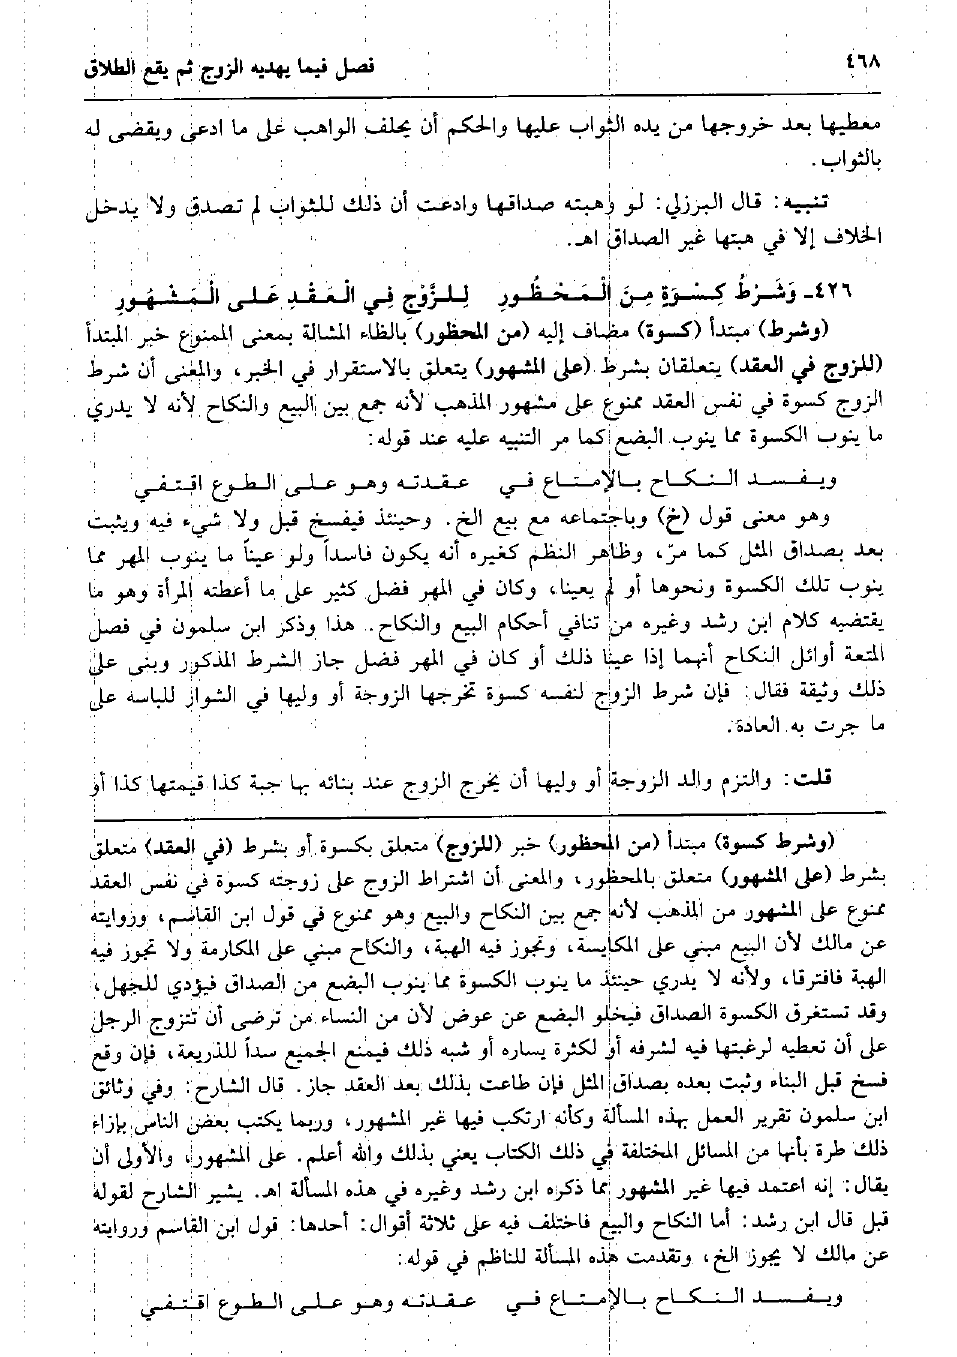 ٤٦٨ فصل فيما يهديه الزوج ثم يقع الطلاق
معطيها بعد خروجها من يده الثواب عليها والحكم أن يحلف الواهب على ما ادعى ويقضى له
بالثواب.
تنبيه: قال البرزلي: لو وهبته صداقها وادعت أن ذلك للثواب لم تصدق ولا يدخل
الخلاف إلا في هبتها غير الصداق اهـ.
٤٢٦ـ وَشَرْطُ كِسْوَةٍ مِنَ الْمَحْظُورِ لِلزَّوْجِ فِي الْعَقْدِ عَلَى الْمَشْهُورِ
(وشرط) مبتدأ (كسوة) مضاف إليه (من المحظور) بالظاء المشالة بمعنى الممنوع خبر المبتدأ
(للزوج في العقد) يتعلقان بشرط (على المشهور) يتعلق بالاستقرار في الخبر، والمعنى أن شرط
الزوج كسوة في نفس العقد ممنوع على مشهور المذهب لأنه جمع بين البيع والنكاح لأنه لا يدري
ما ينوب الكسوة مما ينوب البضع كما مر التنبيه عليه عند قوله:
ويفسد النكاح بالإمتاع في عقدته وهو على الطوع اقتفي
وهو معنى قول (خ) وباجتماعه مع بيع الخ. وحينئذ فيفسخ قبل ولا شيء فيه ويثبت
بعد بصداق المثل كما مرّ، وظاهر النظم كغيره أنه يكون فاسداً ولو عيناً ما ينوب المهر مما
ينوب تلك الكسوة ونحوها أو لم يعينا، وكان في المهر فضل كثير على ما أعطته المرأة وهو ما
يقتضيه كلام ابن رشد وغيره من تنافي أحكام البيع والنكاح. هذا وذكر ابن سلمون في فصل
المتعة أوائل النكاح أنهما إذا عينا ذلك أو كان في المهر فضل جاز الشرط المذكور وبنى على
ذلك وثيقة فقال: فإن شرط الزوج لنفسه كسوة تخرجها الزوجة أو وليها في الشوار للباسه على
ما جرت به العادة.
قلت: والتزم والد الزوجة أو وليها أن يخرج الزوج عند بنائه بها جبة كذا قيمتها كذا أو
(وشرط كسوة) مبتدأ (من المحظور) خبر (للزوج) متعلق بكسوة أو بشرط (في العقد) متعلق
بشرط (على المشهور) متعلق بالمحظور، والمعنى أن اشتراط الزوج على زوجته كسوة في نفس العقد
ممنوع على المشهور من المذهب لأنه جمع بين النكاح والبيع وهو ممنوع في قول ابن القاسم، وروايته
عن مالك لأن البيع مبني على المكايسة، وتجوز فيه الهبة، والنكاح مبني على المكارمة ولا تجوز فيه
الهبة فافترقا، ولأنه لا يدري حينئذ ما ينوب الكسوة مما ينوب البضع من الصداق فيؤدي للجهل،
وقد تستغرق الكسوة الصداق فيخلو البضع عن عوض لأن من النساء من ترضى أن تتزوج الرجل
على أن تعطيه لرغبتها فيه لشرفه أو لكثرة يساره أو شبه ذلك فيمنع الجميع سداً للذريعة، فإن وقع
فسخ قبل البناء وثبت بعده بصداق المثل فإن طاعت بذلك بعد العقد جاز. قال الشارح: وفي وثائق
ابن سلمون تقرير العمل بهذه المسألة وكأنه ارتكب فيها غير المشهور، وربما يكتب بعض الناس بإزاء
ذلك طرة بأنها من المسائل المختلفة في ذلك الكتاب يعني بذلك والله أعلم. على المشهور، والأولى أن
يقال: إنه اعتمد فيها غير المشهور مما ذكره ابن رشد وغيره في هذه المسألة اهـ. يشير الشارح لقوله
قبل قال ابن رشد: أما النكاح والبيع فاختلف فيه على ثلاثة أقوال: أحدها: قول ابن القاسم وروايته
عن مالك لا يجوز الخ، وتقدمت هذه المسألة للناظم في قوله:
ويفسد النكاح بالإمتاع في عقدته وهو على الطوع اقتفي